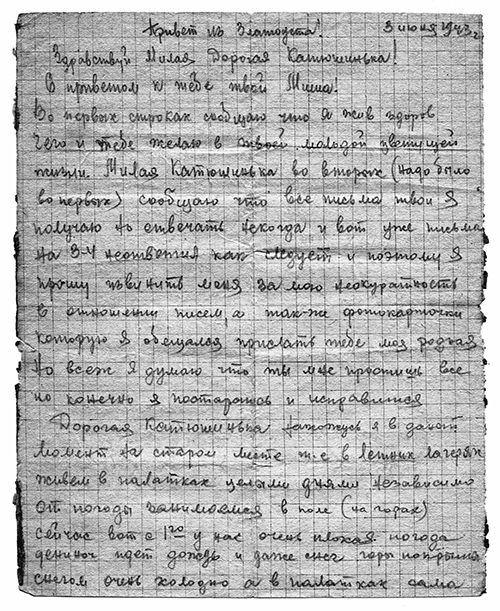 Привет из Златоуста! 3 июня 1943 г
Здравствуй Милая Дорогая Катюшинька!
С приветом к тебе твой Миша!
Во первых строках сообщаю что я жив здоров
чего и тебе желаю в твоей молодой цветущей
жизни. Милая Катюшинька во вторых (надо было
во первых) сообщаю что все письма твои я
получаю но отвечать некогда и вот уже письма
на 3-4 неответил как следует и поэтому я
прошу извинить меня за мою неокуратность
в отношении писем, а так-же фотокарточки
которую я обещался прислать тебе моя родная
Но всеж я думаю что ты мне простишь все
но конечно я постараюсь и исправится
Дорогая Катюшинька нахожусь я в даной
момент на старом месте т.е в летних лагерях
живем в палатках целыми днями независимо
от погоды занимаемся в поле (на горах)
сейчас вот с 1го у нас очень плохая погода
день и ноч идет дождь и даже снег горы покрыты
снегом очень холодно а в палатках сама